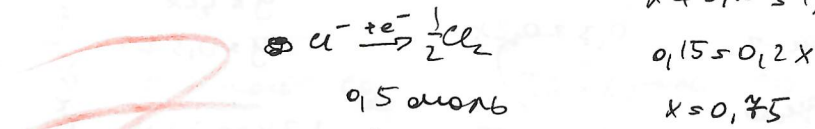 Cl⁻ +e⁻→ ½Cl₂
0,5 моль
0,15 = 0,2x
x = 0,75